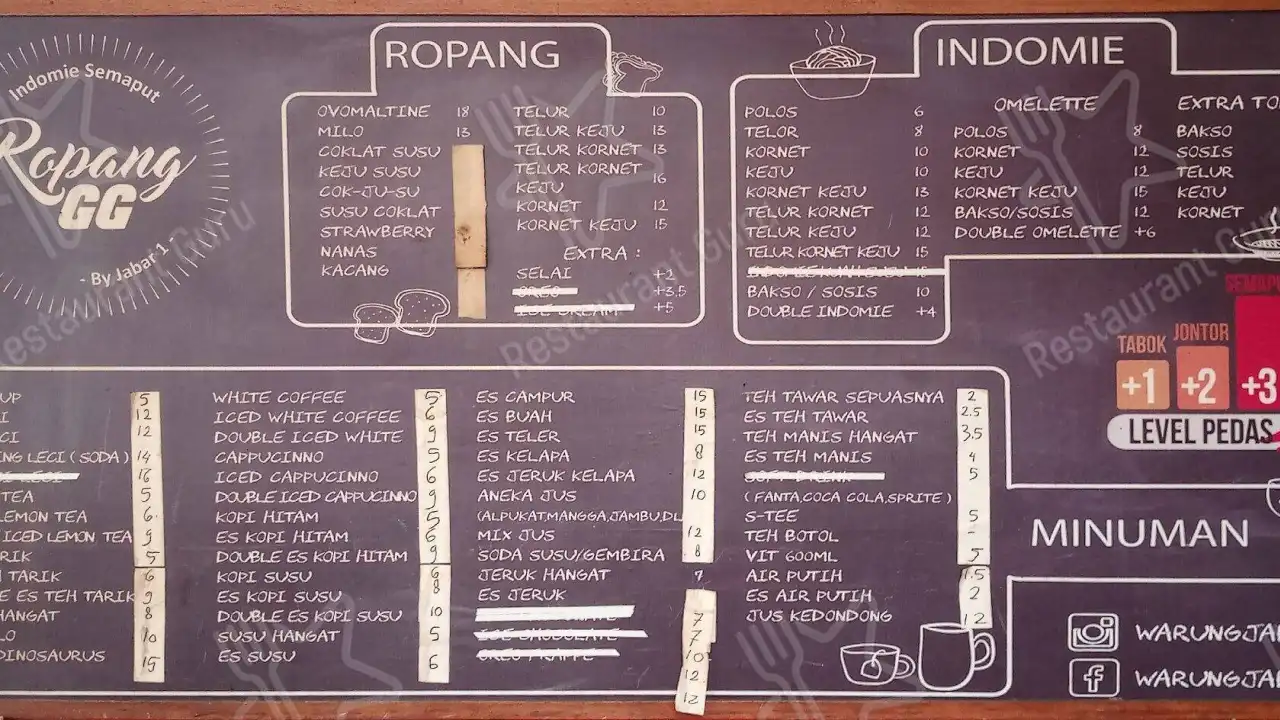 Indomie Semaput
Ropang
GG
- By Jabar 1 -
ROPANG
OVOMALTINE 18
MILO 13
COKLAT SUSU
KEJU SUSU
COK-JU-SU
SUSU COKLAT
STRAWBERRY
NANAS
KACANG
TELUR 10
TELUR KEJU 13
TELUR KORNET 13
TELUR KORNET
KEJU 16
KORNET 12
KORNET KEJU 15
EXTRA :
SELAI +2
OREO +3.5
ICE CREAM +5
INDOMIE
POLOS 6
TELOR 8
KORNET 10
KEJU 10
KORNET KEJU 13
TELUR KORNET 12
TELUR KEJU 12
TELUR KORNET KEJU 15
BAKSO / SOSIS 10
DOUBLE INDOMIE +4
OMELETTE
POLOS 8
KORNET 12
KEJU 12
KORNET KEJU 15
BAKSO/SOSIS 12
DOUBLE OMELETTE +6
EXTRA TO
BAKSO
SOSIS
TELUR
KEJU
KORNET
TABOK JONTOR SEMAP
+1 +2 +3
LEVEL PEDAS
UP 5
I 12
CI 12
NG LECI ( SODA ) 14
16
TEA 5
LEMON TEA 6
ICED LEMON TEA 9
ARIK 5
H TARIK 6
E ES TEH TARIK 9
HANGAT 8
LO 10
DINOSAURUS 15
WHITE COFFEE 5
ICED WHITE COFFEE 6
DOUBLE ICED WHITE 9
CAPPUCINNO 5
ICED CAPPUCINNO 6
DOUBLE ICED CAPPUCINNO 9
KOPI HITAM 5
ES KOPI HITAM 6
DOUBLE ES KOPI HITAM 9
KOPI SUSU 6
ES KOPI SUSU 8
DOUBLE ES KOPI SUSU 10
SUSU HANGAT 5
ES SUSU 6
ES CAMPUR 15
ES BUAH 15
ES TELER 15
ES KELAPA 8
ES JERUK KELAPA 12
ANEKA JUS 10
(ALPUKAT,MANGGA,JAMBU,DL
MIX JUS 12
SODA SUSU/GEMBIRA 8
JERUK HANGAT 7
ES JERUK 7
7
10
12
12
TEH TAWAR SEPUASNYA 2
ES TEH TAWAR 2.5
TEH MANIS HANGAT 3,5
ES TEH MANIS 4
SOFT DRINK 5
( FANTA,COCA COLA,SPRITE )
S-TEE 5
TEH BOTOL -
VIT 600ML 5
AIR PUTIH 1.5
ES AIR PUTIH 2
JUS KEDONDONG 12
MINUMAN
WARUNGJA
WARUNGJA
Restaurant Guru
Restaurant Guru
Restaurant Guru